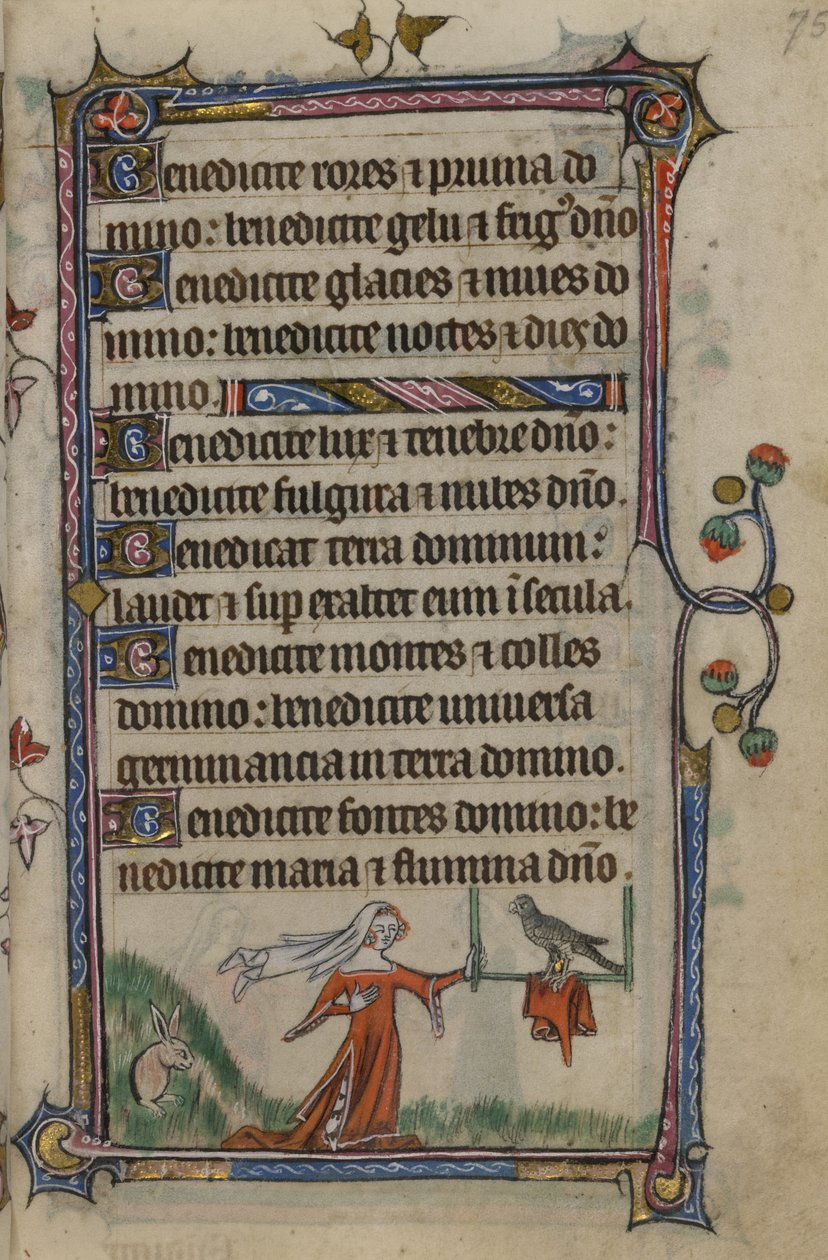 75
Benedicite rores ⁊ pruina do
mino: benedicite gelu ⁊ frigꝰ dño
Benedicite glacies ⁊ niues do
mino: benedicite noctes ⁊ dies do
mino.
Benedicite lux ⁊ tenebre dño:
benedicite fulgura ⁊ nubes dño.
Benedicat terra dominum:
laudet ⁊ suꝑ exaltet eum ī secula.
Benedicite montes ⁊ colles
domino: benedicite uniuersa
germinancia in terra domino.
Benedicite fontes domino: be
nedicite maria ⁊ flumina dño.